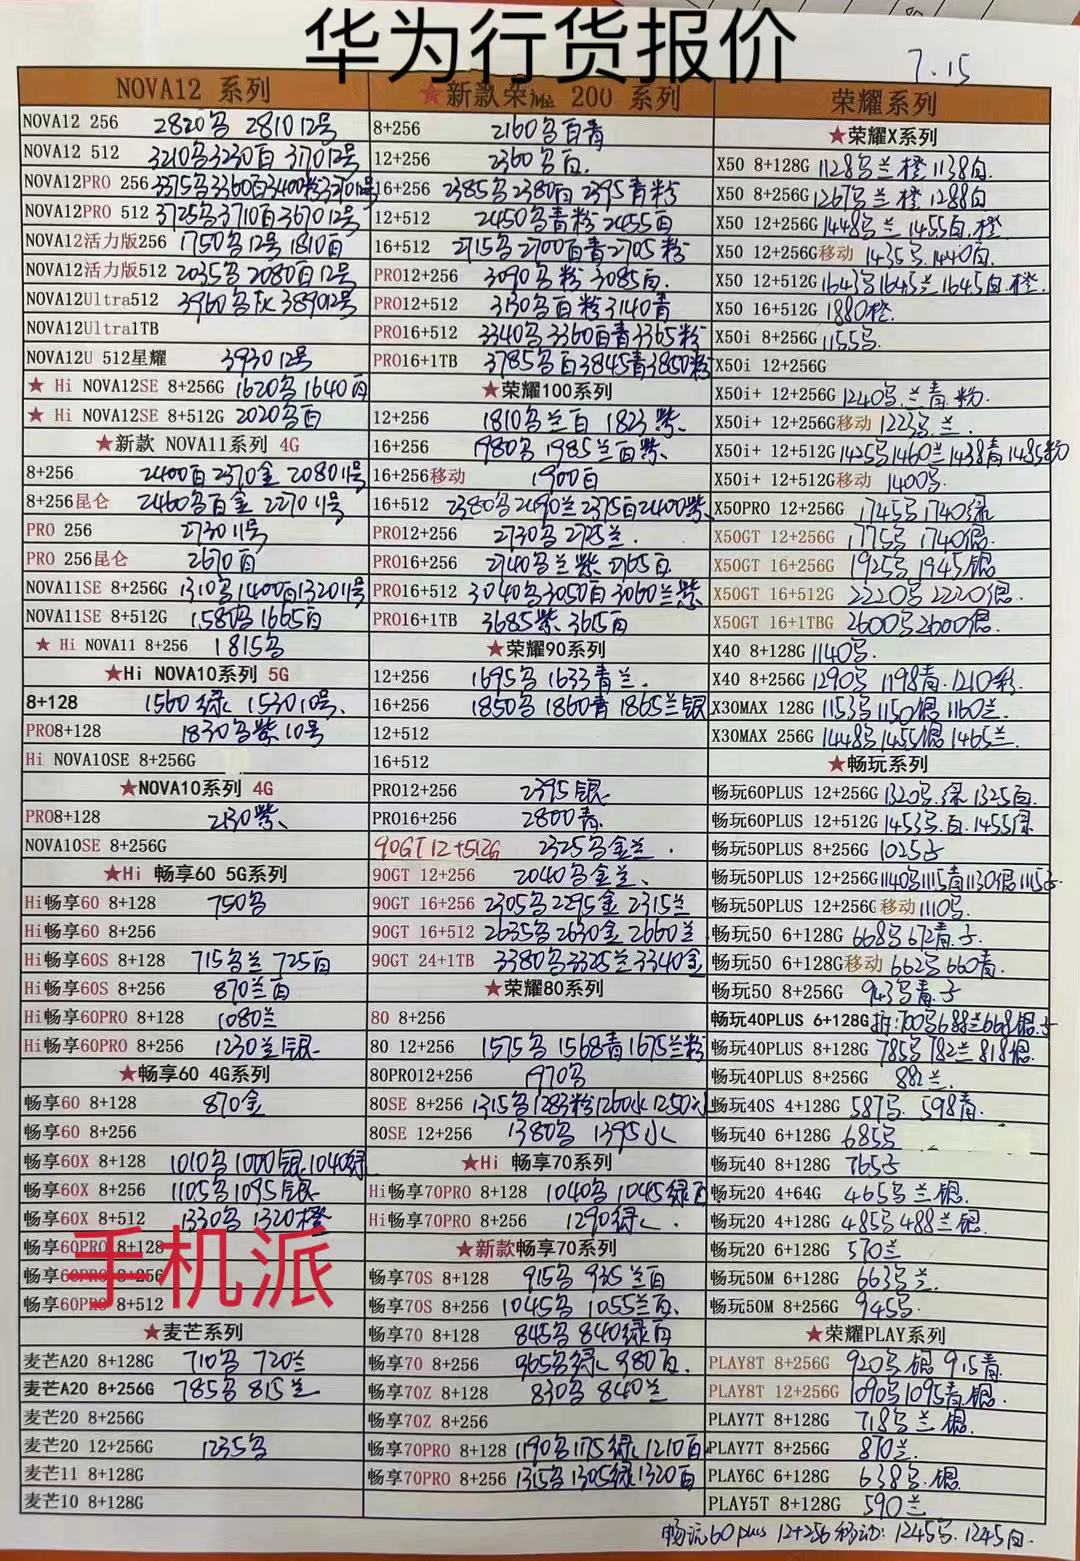 华为行货报价
7.15
NOVA12 系列
NOVA12 256 2820乌 2810 12号
NOVA12 512 3210乌3230白 3170 12号
NOVA12PRO 256 3375乌3360白3400粉3370 12号
NOVA12PRO 512 3725乌3710白3670 12号
NOVA12活力版256 1750乌12号 1810白
NOVA12活力版512 2035乌 2080白12号
NOVA12Ultra512 3960乌灰 3890 12号
NOVA12Ultra1TB
NOVA12U 512星耀 3930 12号
★ Hi NOVA12SE 8+256G 1620乌 1640白
★ Hi NOVA12SE 8+512G 2020乌白
★新款 NOVA11系列 4G
8+256 2400白 2370金 2080 11号
8+256昆仑 2460乌白金 2270 11号
PRO 256 2730 11号
PRO 256昆仑 2670白
NOVA11SE 8+256G 1310乌1400白1320 11号
NOVA11SE 8+512G 1580乌 1665白
★ Hi NOVA11 8+256 1815乌
★Hi NOVA10系列 5G
8+128 1560绿 1530 10号
PRO8+128 1830乌紫 10号
Hi NOVA10SE 8+256G
★NOVA10系列 4G
PRO8+128 2130紫
NOVA10SE 8+256G
★Hi 畅享60 5G系列
Hi畅享60 8+128 750乌
Hi畅享60 8+256
Hi畅享60S 8+128 715乌兰 725白
Hi畅享60S 8+256 870兰白
Hi畅享60PRO 8+128 1080兰
Hi畅享60PRO 8+256 1230兰银
★畅享60 4G系列
畅享60 8+128 870金
畅享60 8+256
畅享60X 8+128 1010乌 1000银 1040绿
畅享60X 8+256 1105乌 1095银
畅享60X 8+512 1330乌 1320橙
畅享60PRO 8+128
畅享60PRO 8+256
畅享60PRO 8+512
手机派
★麦芒系列
麦芒A20 8+128G 710乌 720兰
麦芒A20 8+256G 785乌 815兰
麦芒20 8+256G
麦芒20 12+256G 1235乌
麦芒11 8+128G
麦芒10 8+128G
★新款荣耀 200 系列
8+256 2160乌白青
12+256 2360乌白
16+256 2385乌2380白 2395青粉
12+512 2450乌青粉 2455白
16+512 2715乌2700白青2705粉
PRO12+256 3090乌粉 3085白
PRO12+512 3130乌白粉3140青
PRO16+512 3340乌 3360白青3365粉
PRO16+1TB 3785乌白3845青3850粉
★荣耀100系列
12+256 1810乌兰白 1823紫
16+256 1980乌 1985兰白紫
16+256移动 1900白
16+512 2380乌2490兰2375白2400紫
PRO12+256 2730乌 2725兰
PRO16+256 2740乌兰紫 2765白
PRO16+512 3040乌3050白 3060兰紫
PRO16+1TB 3685紫 3615白
★荣耀90系列
12+256 1695乌 1633青兰
16+256 1850乌 1860青 1865兰银
12+512
16+512
PRO12+256 2395银
PRO16+256 2800青
90GT 12+512G 2325乌金兰
90GT 12+256 2040乌金兰
90GT 16+256 2305乌2295金 2315兰
90GT 16+512 2635乌 2630金 2660兰
90GT 24+1TB 3380乌3325兰3340金
★荣耀80系列
80 8+256
80 12+256 1575乌 1568青1675兰粉
80PRO12+256 1970乌
80SE 8+256 1315乌1283粉1260水
80SE 12+256 1380乌 1395水
★Hi 畅享70系列
Hi畅享70PRO 8+128 1040乌1045绿白
Hi畅享70PRO 8+256 1290绿
★新款畅享70系列
畅享70S 8+128 915乌 935兰白
畅享70S 8+256 1045乌 1055兰白
畅享70 8+128 845乌 840绿白
畅享70 8+256 965乌绿 980白
畅享70Z 8+128 830乌 840兰
畅享70Z 8+256
畅享70PRO 8+128 1190乌1175绿1210白
畅享70PRO 8+256 1315乌1305绿1320白
荣耀系列
★荣耀X系列
X50 8+128G 1128乌兰橙1138白
X50 8+256G 1267乌兰橙 1288白
X50 12+256G 1448乌兰 1455白橙
X50 12+256G移动 1435乌1440白
X50 12+512G 1643乌1645兰1645白橙
X50 16+512G 1880橙
X50i 8+256G 1155乌
X50i 12+256G
X50i+ 12+256G 1240乌兰青粉
X50i+ 12+256G移动 1223乌兰
X50i+ 12+512G 1425乌1460兰1438青1485粉
X50i+ 12+512G移动 1400乌
X50PRO 12+256G 1745乌1740绿
X50GT 12+256G 1775乌 1740银
X50GT 16+256G 1925乌1945银
X50GT 16+512G 2220乌2220银
X50GT 16+1TBG 2600乌2600银
X40 8+128G 1140乌
X40 8+256G 1290乌 1198青 1210彩
X30MAX 128G 1153乌1150银 1160兰
X30MAX 256G 1448乌1455银 1465兰
★畅玩系列
畅玩60PLUS 12+256G 1320乌绿 1325白
畅玩60PLUS 12+512G 1453乌白1455绿
畅玩50PLUS 8+256G 1025子
畅玩50PLUS 12+256G 1140乌1115青1130银1115子
畅玩50PLUS 12+256G移动 1110乌
畅玩50 6+128G 668乌672青子
畅玩50 6+128G移动 662乌660青
畅玩50 8+256G 943乌青子
畅玩40PLUS 6+128G 拆:700乌688兰668银子
畅玩40PLUS 8+128G 785乌782兰818银
畅玩40PLUS 8+256G 882兰
畅玩40S 4+128G 587乌 598青
畅玩40 6+128G 685乌
畅玩40 8+128G 765子
畅玩20 4+64G 465乌兰银
畅玩20 4+128G 485乌488兰银
畅玩20 6+128G 570兰
畅玩50M 6+128G 663乌兰
畅玩50M 8+256G 945乌
★荣耀PLAY系列
PLAY8T 8+256G 920乌银 915青
PLAY8T 12+256G 1090乌1095青银
PLAY7T 8+128G 718乌兰银
PLAY7T 8+256G 870兰
PLAY6C 6+128G 638乌银
PLAY5T 8+128G 590兰
畅玩60plus 12+256移动:1245乌.1245白.